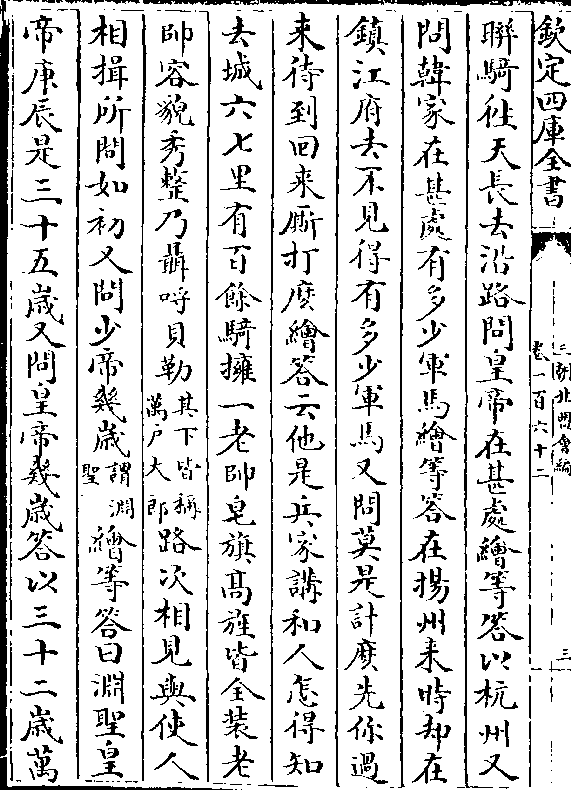 欽定四庫全書
三朝北盟會編
卷一百六十二
三
聯騎徃天長去沿路問皇帝在甚處繪等答以杭州又
問韓家在甚處有多少軍馬繪等答在揚州来時却在
鎮江府去不見得有多少軍馬又問莫是計麽先你過
来待到回来厮打麽繪答云他是兵家講和人怎得知
去城六七里有百餘騎擁一老帥皂旗髙旌皆全装老
帥容貌秀整乃聶哷貝勒其下皆稱萬戶大郎路次相見與使人
相揖所問如初又問少帝幾歳謂淵聖繪等答曰淵聖皇
帝庚辰是三十五歳又問皇帝幾歳答以三十二歳萬